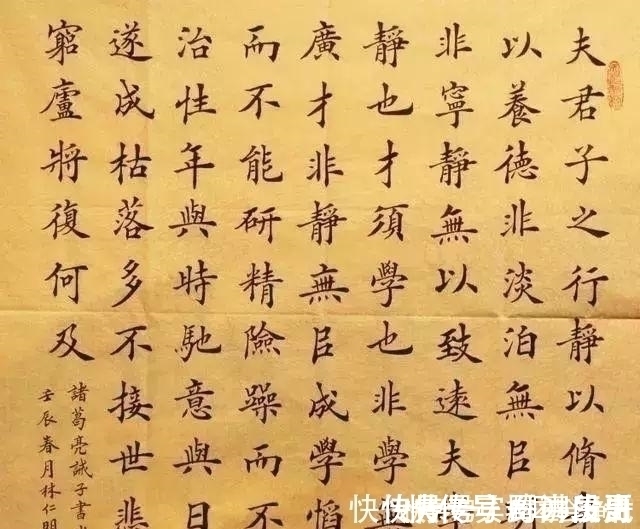 夫君子之行靜以脩
以養德非淡泊無㠯
非寧靜無以致遠夫
靜也才須學也非學
廣才非靜無㠯成學慆
而不能研精險躁而不
治性年與時馳意與日
遂成枯落多不接世悲
窮廬將復何及
諸葛亮誡子書
壬辰春月林仁明